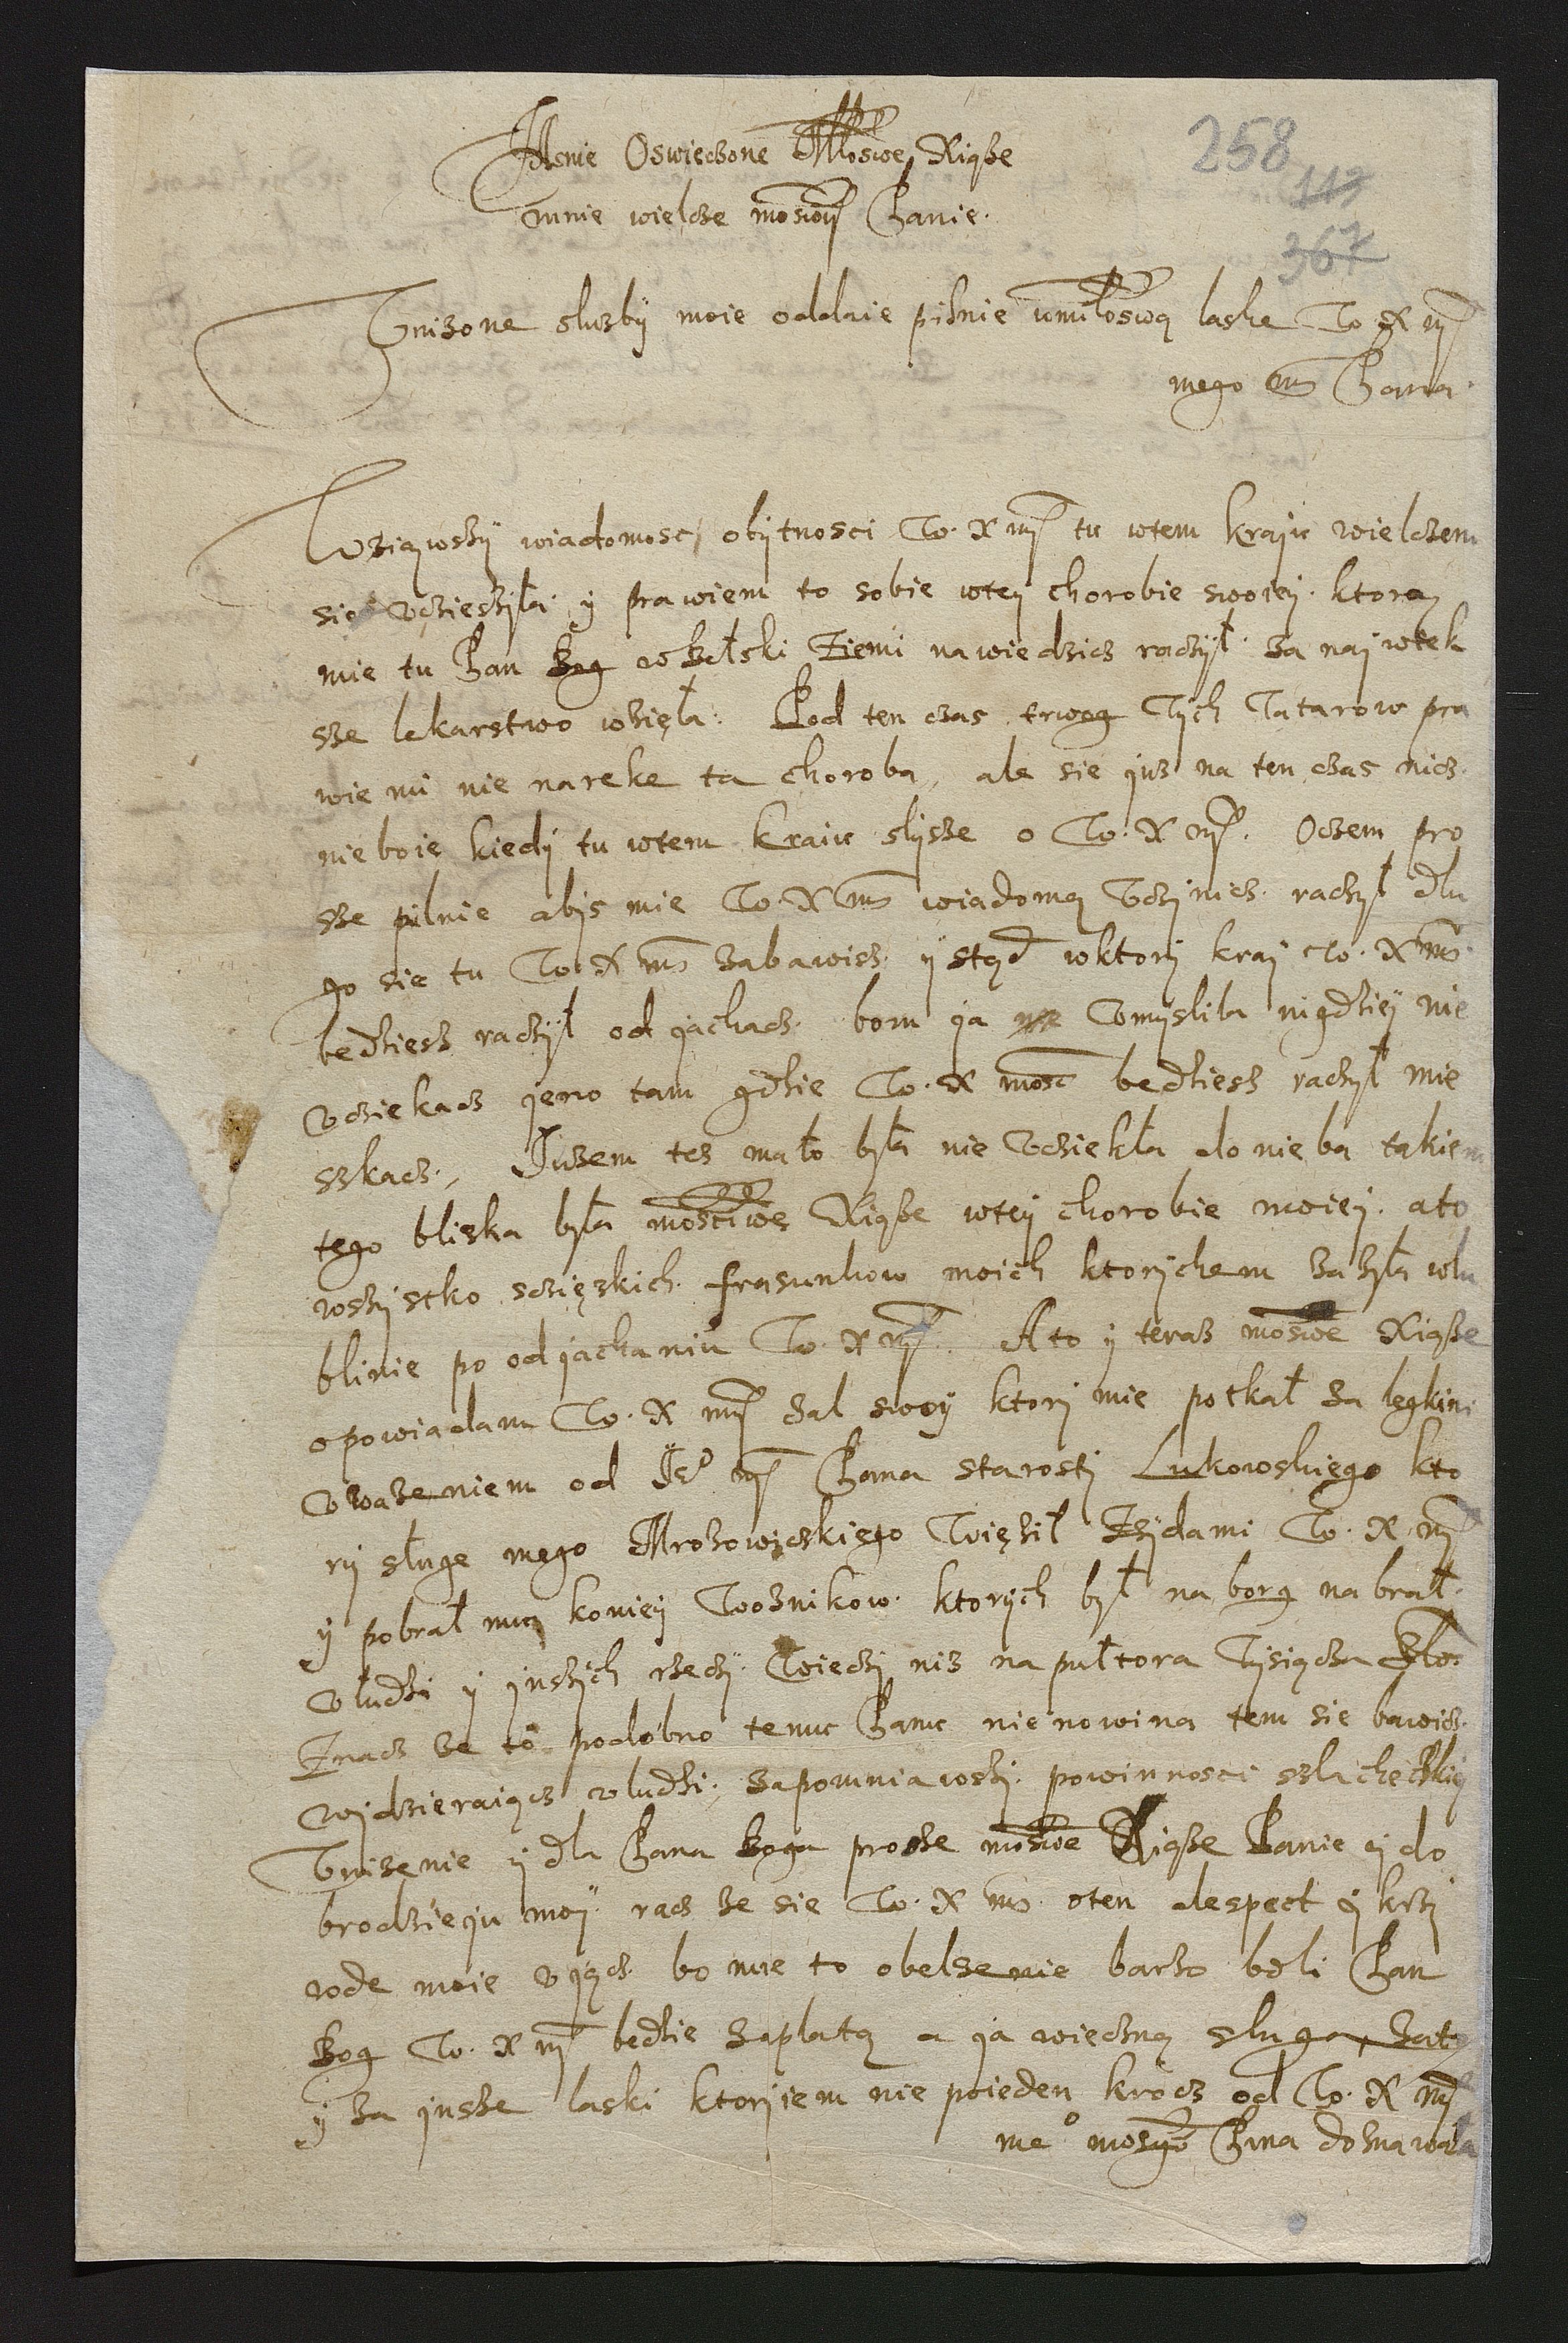 Jasnie Oswieczone Mosciwe Xiąze
mnie wielcze mosciwy Panie.
258
113
367
Vnizone sluzby moie oddaie pilnie wmiłosciwą laske W. X M
mego M Pana.
Wziąwszy wiadomosc, obytnosci W. X M tu wtem kraju wielczem
sie vczieszyła y prawiem to sobie wtey chorobie swoiey. ktorą
mie tu Pan Bog w Bełski Ziemi nawiedzicz raczył. za najwtek
sze lekarstwo wzięła. Pod ten czas trwog Tych Tatarow pra
wie mi nie nareke ta choroba, ale sie juz na ten czas nicz
nieboie kiedy tu wtem kraiu slysze o W. X M. Oczem pro
sze pilnie abys mie W. X M wiadomą vczynicz raczył dłu
go sie tu W. X M zabawisz y stąd wktory kraj W. X M
bedziesz raczył od jachacz. bom ja vmysliła nigdziey nie
vcziekacz jeno tam gdzie W. X mosc bedziesz raczył mie
szkacz, Juzem tez mało była nie vcziekła do nieba takiem
tego bliska była mosciwe Xiąze wtey chorobie moiey. ato
wszystko scziężkich frasunkow moich ktorychem zazyła wlu
blinie po odjachaniu W. X M. Ato y teraz mosciwe Xiąze
opowiadam W. X M zal swoy ktory mie potkał za legkim
vwazeniem od Je M Pana starosty Lukowskiego kto
ry sługe mego Mrozowiczkiego więził Zydami W. X M
y pobrał mu koniey woznikow. ktorych był na borg nabrał
vludzi y jnszych rzeczy. wieczy niz napułtora Tysiącza zło
Znacz ze to podobno temu Panu nie nowina tem sie bawicz
wydzieraiącz vludzi. zapomniawszy powinnosci szlacheczkiey
Vnizenie y dla Pana Boga prosze mosciwe Xiąze Panie y do
brodzieju moy racz ze sie W. X M. oten despect y krzy
wde moie vjącz bo mie to obelzenie barzo boli Pan
Bog W. X M bedzie zaplatą a ja wieczną slugą, zato
y za jnsze laski ktoryiem nie poieden krocz od W. X M
me° mosgo Pana doznawała